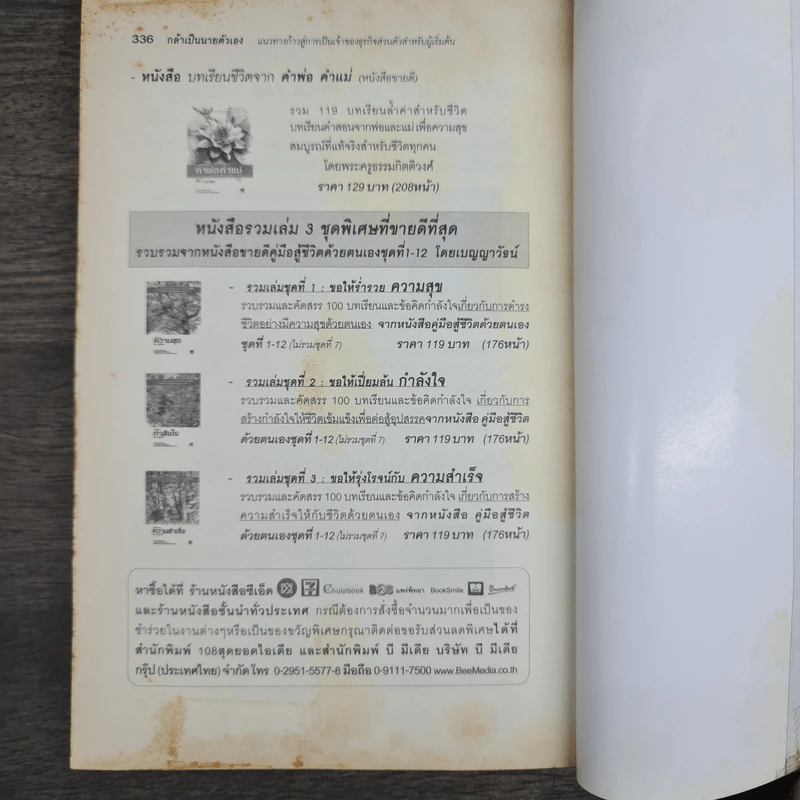 336 กล้าเป็นนายตัวเอง แนวทางก้าวสู่การเป็นเจ้าของธุรกิจส่วนตัวสำหรับผู้เริ่มต้น
- หนังสือ บทเรียนชีวิตจาก คำพ่อ คำแม่ (หนังสือขายดี)
รวม 119 บทเรียนล้ำค่าสำหรับชีวิต
บทเรียนคำสอนจากพ่อและแม่ เพื่อความสุข
สมบูรณ์ที่แท้จริงสำหรับชีวิตทุกคน
โดยพระครูธรรมกิตติวงศ์
ราคา 129 บาท (208หน้า)
คำพ่อ คำแม่
หนังสือรวมเล่ม 3 ชุดพิเศษที่ขายดีที่สุด
รวบรวมจากหนังสือขายดีคู่มือสู้ชีวิตด้วยตนเองชุดที่1-12 โดยเบญญาวัธน์
- รวมเล่มชุดที่ 1 : ขอให้ร่ำรวย ความสุข
รวบรวมและคัดสรร 100 บทเรียนและข้อคิดกำลังใจเกี่ยวกับการดำรง
ชีวิตอย่างมีความสุขด้วยตนเอง จากหนังสือคู่มือสู้ชีวิตด้วยตนเอง
ชุดที่ 1-12 (ไม่รวมชุดที่ 7) ราคา 119 บาท (176หน้า)
ความสุข
- รวมเล่มชุดที่ 2 : ขอให้เปี่ยมล้น กำลังใจ
รวบรวมและคัดสรร 100 บทเรียนและข้อคิดกำลังใจ เกี่ยวกับการ
สร้างกำลังใจให้ชีวิตเข้มแข็งเพื่อต่อสู้อุปสรรคจากหนังสือ คู่มือสู้ชีวิต
ด้วยตนเองชุดที่ 1-12 (ไม่รวมชุดที่ 7) ราคา 119 บาท (176หน้า)
กำลังใจ
- รวมเล่มชุดที่ 3 : ขอให้รุ่งโรจน์กับ ความสำเร็จ
รวบรวมและคัดสรร 100 บทเรียนและข้อคิดกำลังใจ เกี่ยวกับการสร้าง
ความสำเร็จให้กับชีวิตด้วยตนเอง จากหนังสือ คู่มือสู้ชีวิต
ด้วยตนเองชุดที่ 1-12 (ไม่รวมชุดที่ 7) ราคา 119 บาท (176หน้า)
ความสำเร็จ
หาซื้อได้ที่ ร้านหนังสือซีเอ็ด 7 Chulabook B2S แพร่พิทยา BookSmile
และร้านหนังสือชั้นนำทั่วประเทศ กรณีต้องการสั่งซื้อจำนวนมากเพื่อเป็นของ
ชำร่วยในงานต่างๆหรือเป็นของขวัญพิเศษกรุณาติดต่อขอรับส่วนลดพิเศษได้ที่
สำนักพิมพ์ 108สุดยอดไอเดีย และสำนักพิมพ์ บี มีเดีย บริษัท บี มีเดีย
กรุ๊ป (ประเทศไทย) จำกัด โทร 0-2951-5577-8 มือถือ 0-9111-7500 www.BeeMedia.co.th